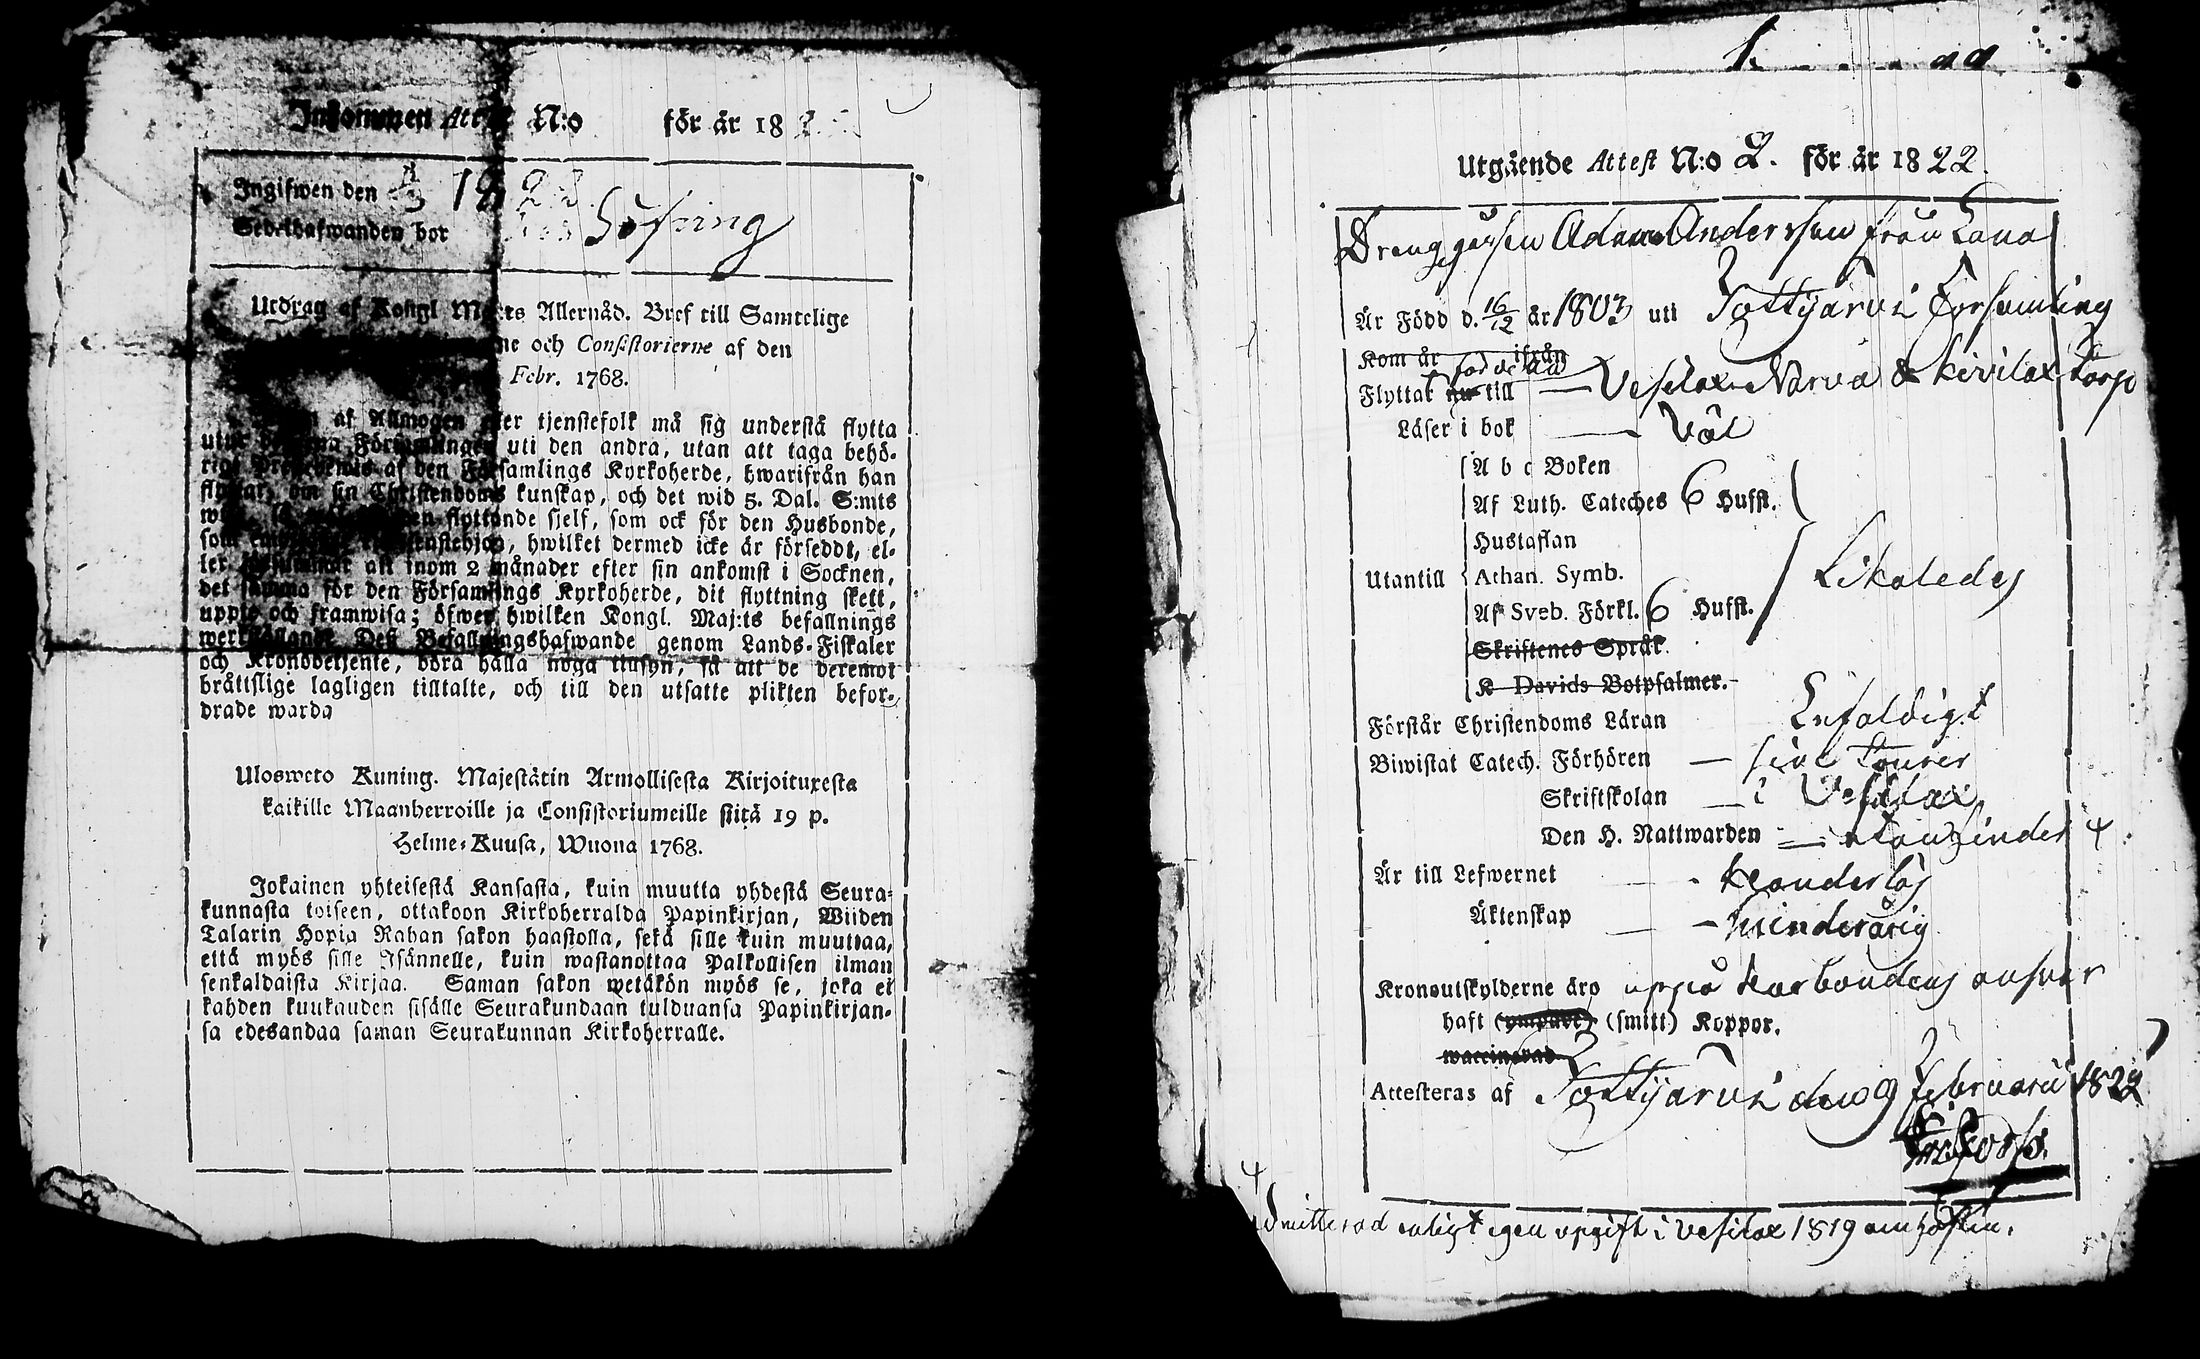 Inkommen Attest N:o för år 18
Ingifwen den 1822
Sedelhafwanden bor Hos Höfting
Utdrag af Kongl Maj:ts Allernåd. Bref till Samtelige
och Consistorierne af den
Febr. 1768.
af Allmogen eller tjenstefolk må sig understå flytta
utur Församlingen uti den andra, utan att taga behö-
rigt af den Församlings Kyrkoherde, hwarifrån han
flyttar, om sin Christendoms kunskap, och det wid 5. Dal. S:mts
flyttande sjelf, som ock för den Husbonde,
som tjenstehjon, hwilket dermed icke är försedt, el-
ler att inom 2 månader efter sin ankomst i Socknen,
det samma för den Församlings Kyrkoherde, dit flyttning skett,
uppte och framwisa; öfwer hwilken Kongl. Maj:ts befallnings
werkställande Deß Befallningshafwande genom Lands-Fiskaler
och Kronobetjente, böra hålla noga tillsyn, så att de deremot
bråttslige lagligen tilltalte, och till den utsatte plikten befor-
drade warda
Ulosweto Kuning. Majestätin Armollisesta Kirjoituxesta
kaikille Maanherroille ja Consistoriumeille siitä 19 p.
Helme-Kuusa, Wuona 1768.
Jokainen yhteisestä Kansasta, kuin muutta yhdestä Seura-
kunnasta toiseen, ottakoon Kirkoherralda Papinkirjan, Wiiden
Talarin Hopia Rahan sakon haastolla, sekä sille kuin muuttaa,
että myös sille Isännelle, kuin wastanottaa Palkollisen ilman
senkaldaista Kirjaa. Saman sakon wetäkön myös se, joka ei
kahden kuukauden sisälle Seurakundaan tulduansa Papinkirjan-
sa edesandaa saman Seurakunnan Kirkoherralle.
Utgående Attest N:o 2. för år 1822.
Drenggossen Adam Andersson från Lana
Är Född d. 16/12 år 1803 uti Tottijärvi Församling
Kom år ifrån
Flyttat nu till Vesilax Narva & Kirilax Torp
Läser i bok Väl
A b c Boken
Af Luth. Cateches 6 Hufst.
Hustaflan
Utantill Athan. Symb. Likaledes
Af Sveb. Förkl. 6 Hufst.
Skriftenes Språk.
K Davids Botpsalmer.
Förstår Christendoms Läran Enfaldigt
Biwistat Catech. Förhören sine tourer
Skriftskolan i Vesilax
Den H. Nattwarden
Är till Lefwernet klanderlös
Äktenskap Minderårig
Kronoutskylderne äro uppå Husbondens answar
haft (ympade) (smitt) Koppor.
waccinerad
Attesteras af Tottijärvi den 9 Februarii 1822
Admitterad enligt egen upgift i Vesilax 1819 om hösten.